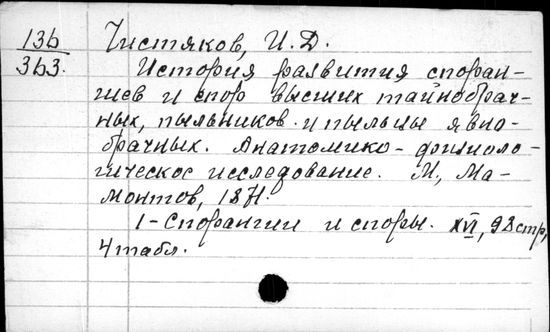 136 Чистяков, И. Д.
363. История развития споран-
гиев и спор высших тайнобрач-
ных, пыльников и пыльцы явно-
брачных. Анатомико-физиоло-
гическое исследование. М., Ма-
монтов, 1871.
1-Спорангии и споры. XVI, 93 стр,
4 табл.